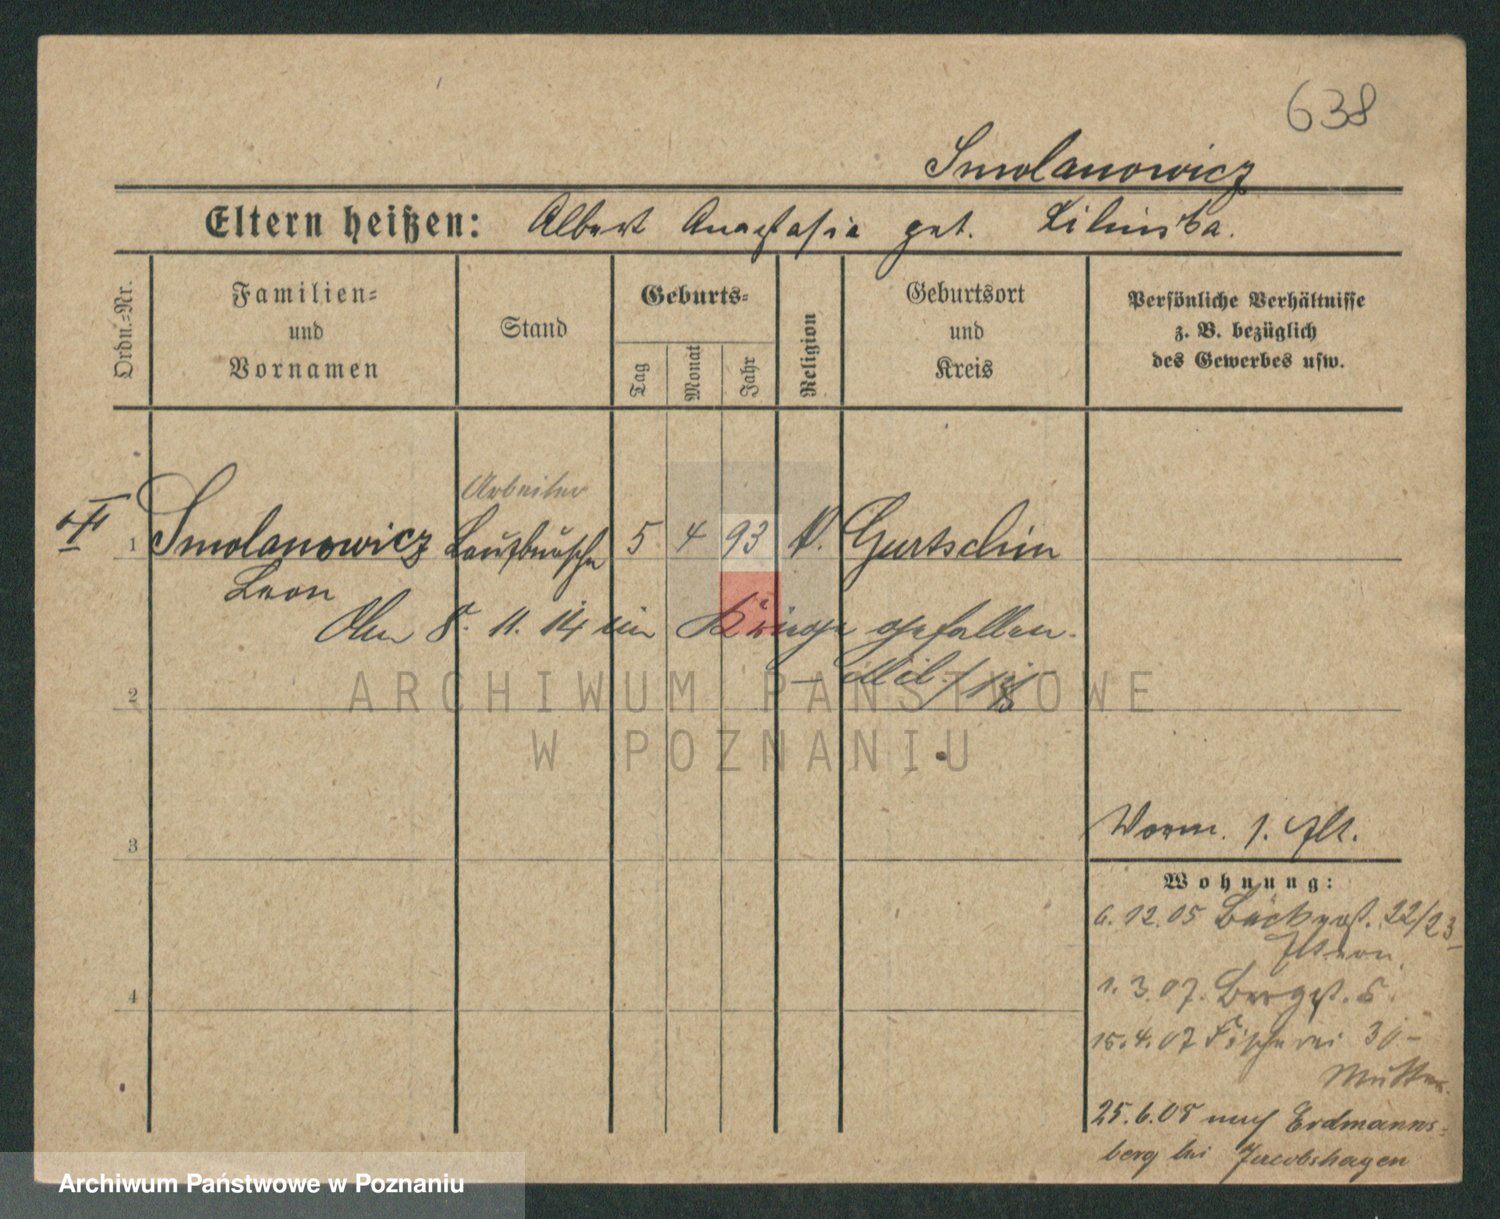 638
Smolanowicz
Eltern heißen: Albert Anastasia geb. Lilinska.
Ordn.-Nr.
Familien-
und
Vornamen
Stand
Geburts-
Tag
Monat
Jahr
Religion
Geburtsort
und
Kreis
Persönliche Verhältnisse
z. B. bezüglich
des Gewerbes usw.
Arbeiter
1 Smolanowicz Laufbursche 5 4 93 k. Gurtschin
Leon
Am 8. 11. 14 im Kriege gefallen.
2
3
4
Worm. 1. Alt.
Wohnung:
6.12.05 Bäckerst. 22/23
Eltern.
1.3.07. Bergst. 5.
15.4.07 Fischerei 30-
Mutter.
25.6.08 nach Erdmanns-
berg bei Jacobshagen
ARCHIWUM PAŃSTWOWE
W POZNANIU
Archiwum Państwowe w Poznaniu